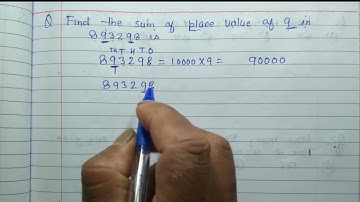 Q Find the sum of place value of 9 in
893298 is
TH T H T O
893298 = 10000×9 = 90000
T
893298